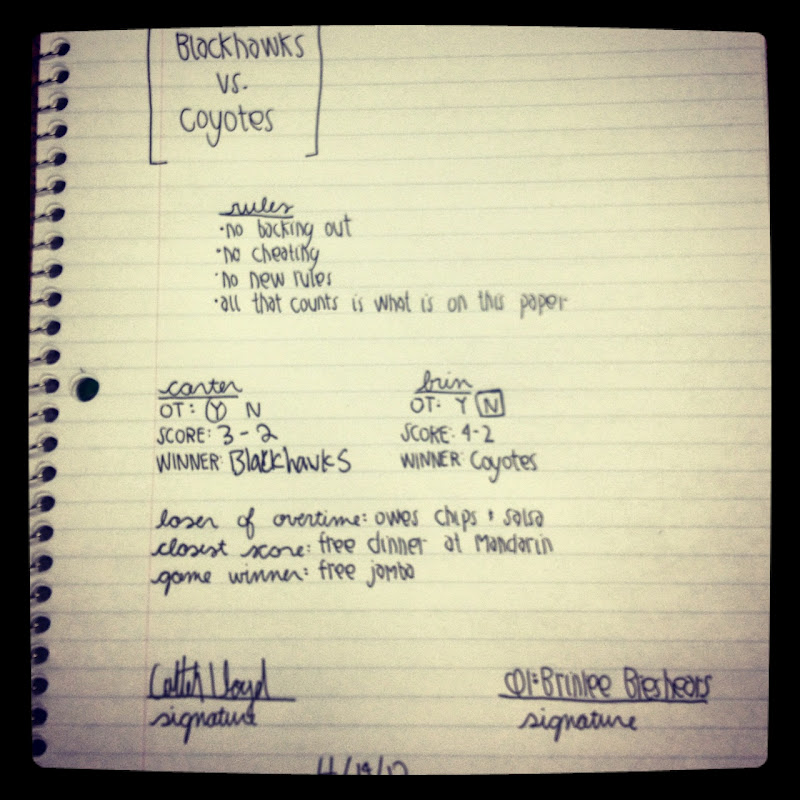 Blackhawks
vs.
Coyotes
rules
·no backing out
·no cheating
·no new rules
·all that counts is what is on this paper
carter
OT: Y N
SCORE: 3-2
WINNER: Blackhawks
brin
OT: Y N
SCORE: 4-2
WINNER: Coyotes
loser of overtime: owes chips & salsa
closest score: free dinner at Mandarin
game winner: free jamba
Lloyd
signature
Brinlee Breshears
signature